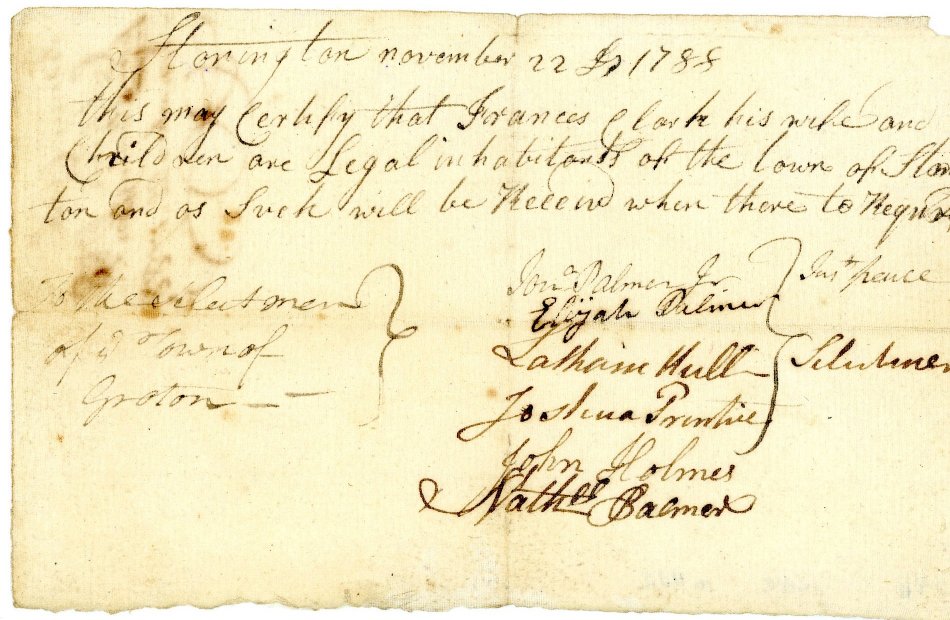 Stonington november 22 D 1788
this may Certify that Frances Clark his wife and
Children are Legal inhabitants of the town of Ston
ton and as Such will be Receivd when there to Requir
To the selectmen
of ye Town of
Groton
Jona Palmer Jr Just peace
Elijah Palmer
Latham Hull Selectmen
Joshua Prentice
John Holmes
Nathll Palmer